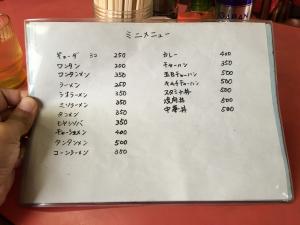 ミニメニュー
ギョーザ 5コ 250
ワンタン 200
ワンタンメン 350
ラーメン 250
みそラーメン 350
タンメン 350
ヒヤシソバ 350
チャーシューメン 400
タンタンメン 500
コーンラーメン 350
カレー 400
チャーハン 350
五目チャーハン 500
キムチチャーハン 500
スタミナ丼 500
焼肉丼 500
中華丼 500